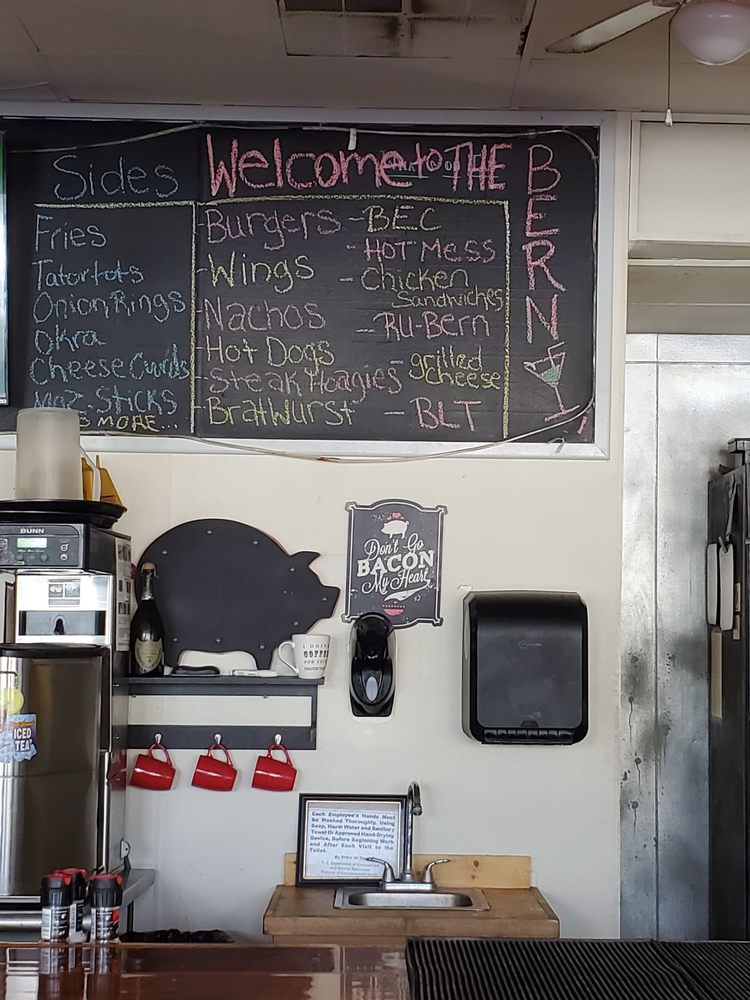 Sides
Fries
Tatortots
Onion Rings
Okra
Cheese Curds
Moz. Sticks
MORE...
Welcome to THE
BERN
-Burgers
-Wings
-Nachos
-Hot Dogs
-Steak Hoagies
-Bratwurst
-BEC
-HOT MESS
-Chicken
Sandwiches
-Ru-Bern
-grilled
cheese
-BLT
BUNN
Don't Go
BACON
My Heart
I DRINK
COFFEE
FOR YOUR
PROTECTION
ICED
TEA
Each Employee's Hands Must
Be Washed Thoroughly, Using
Soap, Warm Water and Sanitary
Towel Or Approved Hand-Drying
Device, Before Beginning Work
and After Each Visit to the
Toilet.